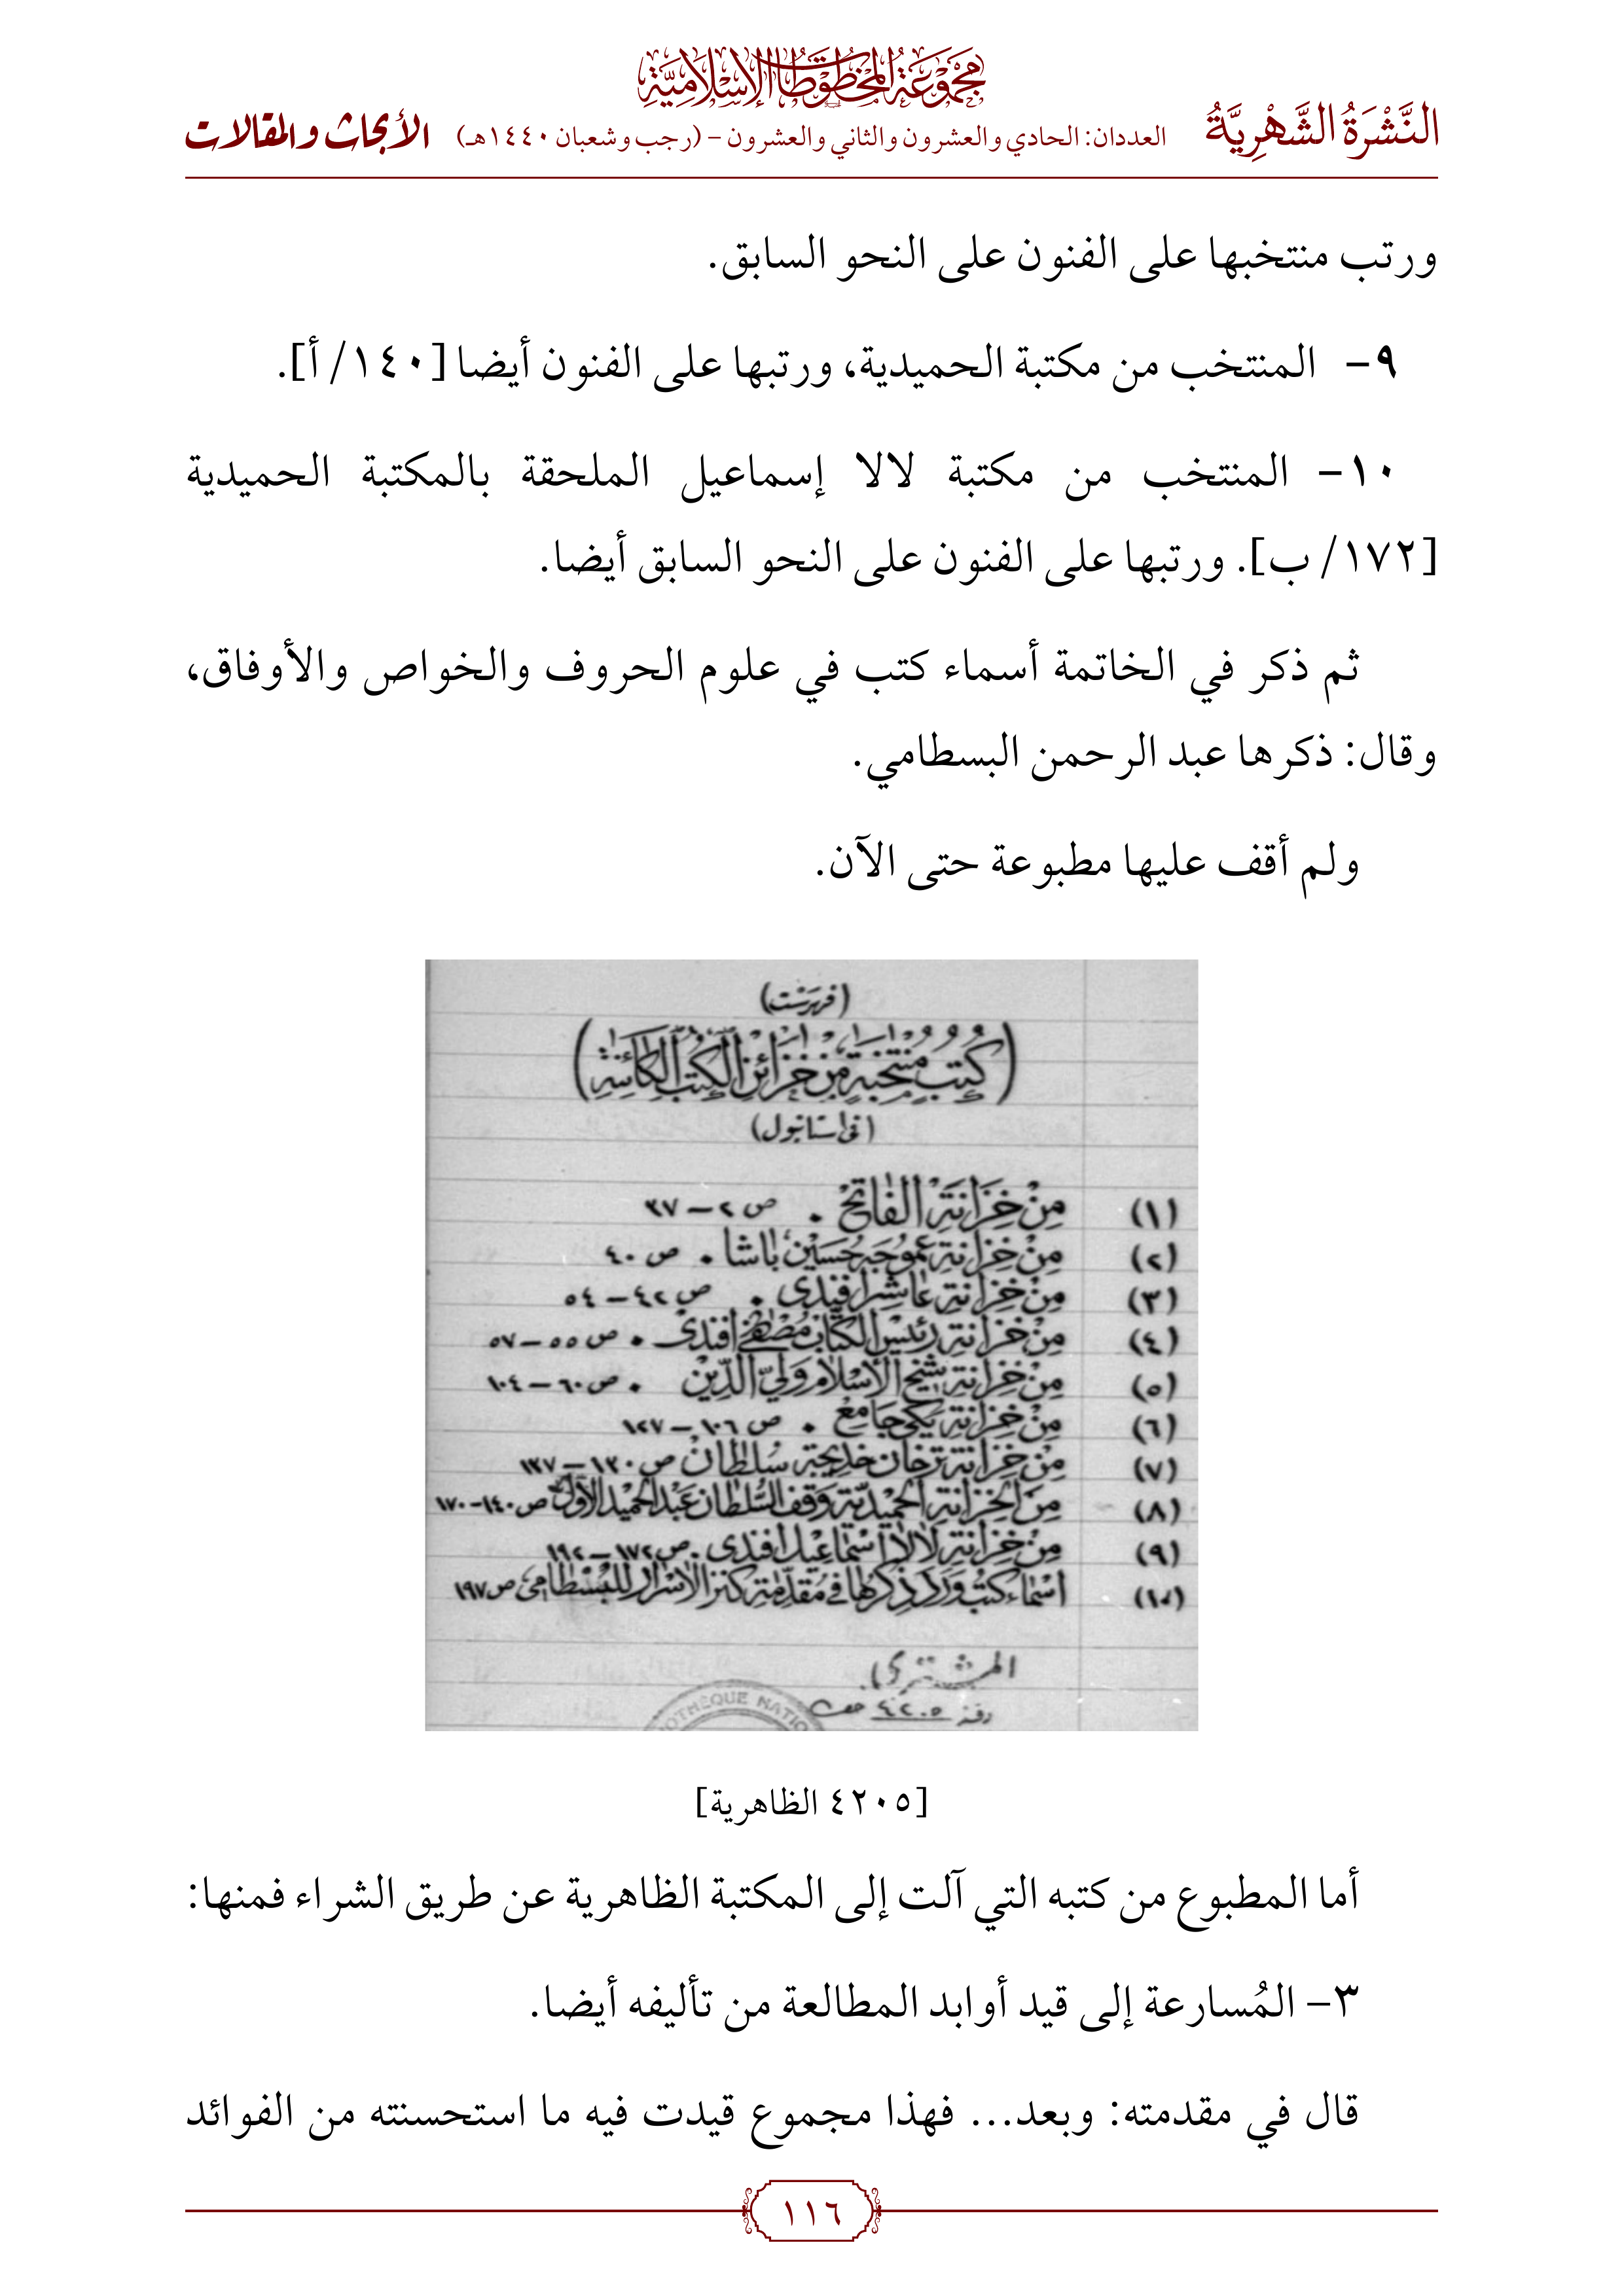 مجموعة المخطوطات الإسلامية
النَّشْرَةُ الشَّهْرِيَّةُ العددان: الحادي والعشرون والثاني والعشرون – (رجب وشعبان ١٤٤٠هـ) الأبحاث والمقالات
ورتب منتخبها على الفنون على النحو السابق.
٩– المنتخب من مكتبة الحميدية، ورتبها على الفنون أيضا [١٤٠/ أ].
١٠– المنتخب من مكتبة لالا إسماعيل الملحقة بالمكتبة الحميدية
[١٧٢/ ب]. ورتبها على الفنون على النحو السابق أيضا.
ثم ذكر في الخاتمة أسماء كتب في علوم الحروف والخواص والأوفاق،
وقال: ذكرها عبد الرحمن البسطامي.
ولم أقف عليها مطبوعة حتى الآن.
(فهرست)
(كتب منتخبة من خزائن الكتب الكائنة)
(في استانبول)
(١) من خزانة الفاتح . ص ٢ – ٣٧
(٢) من خزانة عموجه حسين باشا . ص ٤٠
(٣) من خزانة عاشر افندى . ص ٤٢ – ٥٤
(٤) من خزانة رئيس الكتاب مصطفى افندى . ص ٥٥ – ٥٧
(٥) من خزانة شيخ الاسلام ولي الدين . ص ٦٠ – ١٠٤
(٦) من خزانة يكى جامع . ص ١٠٦ – ١٢٧
(٧) من خزانة ترخان خديجة سلطان ص ١٣٠ – ١٣٧
(٨) من الخزانة الحميدية وقف السلطان عبد الحميد الأول ص ١٤٠ – ١٧٠
(٩) من خزانة لالا اسماعيل افندى . ص ١٧٢ – ١٩٢
(١٠) اسماء كتب ورد ذكرها في مقدمة كنز الاسرار للبسطامى ص ١٩٧
المشترى
٤٢٠٥
OTHÈQUE NATIO
[٤٢٠٥ الظاهرية]
أما المطبوع من كتبه التي آلت إلى المكتبة الظاهرية عن طريق الشراء فمنها:
٣– المُسارعة إلى قيد أوابد المطالعة من تأليفه أيضا.
قال في مقدمته: وبعد... فهذا مجموع قيدت فيه ما استحسنته من الفوائد
١١٦